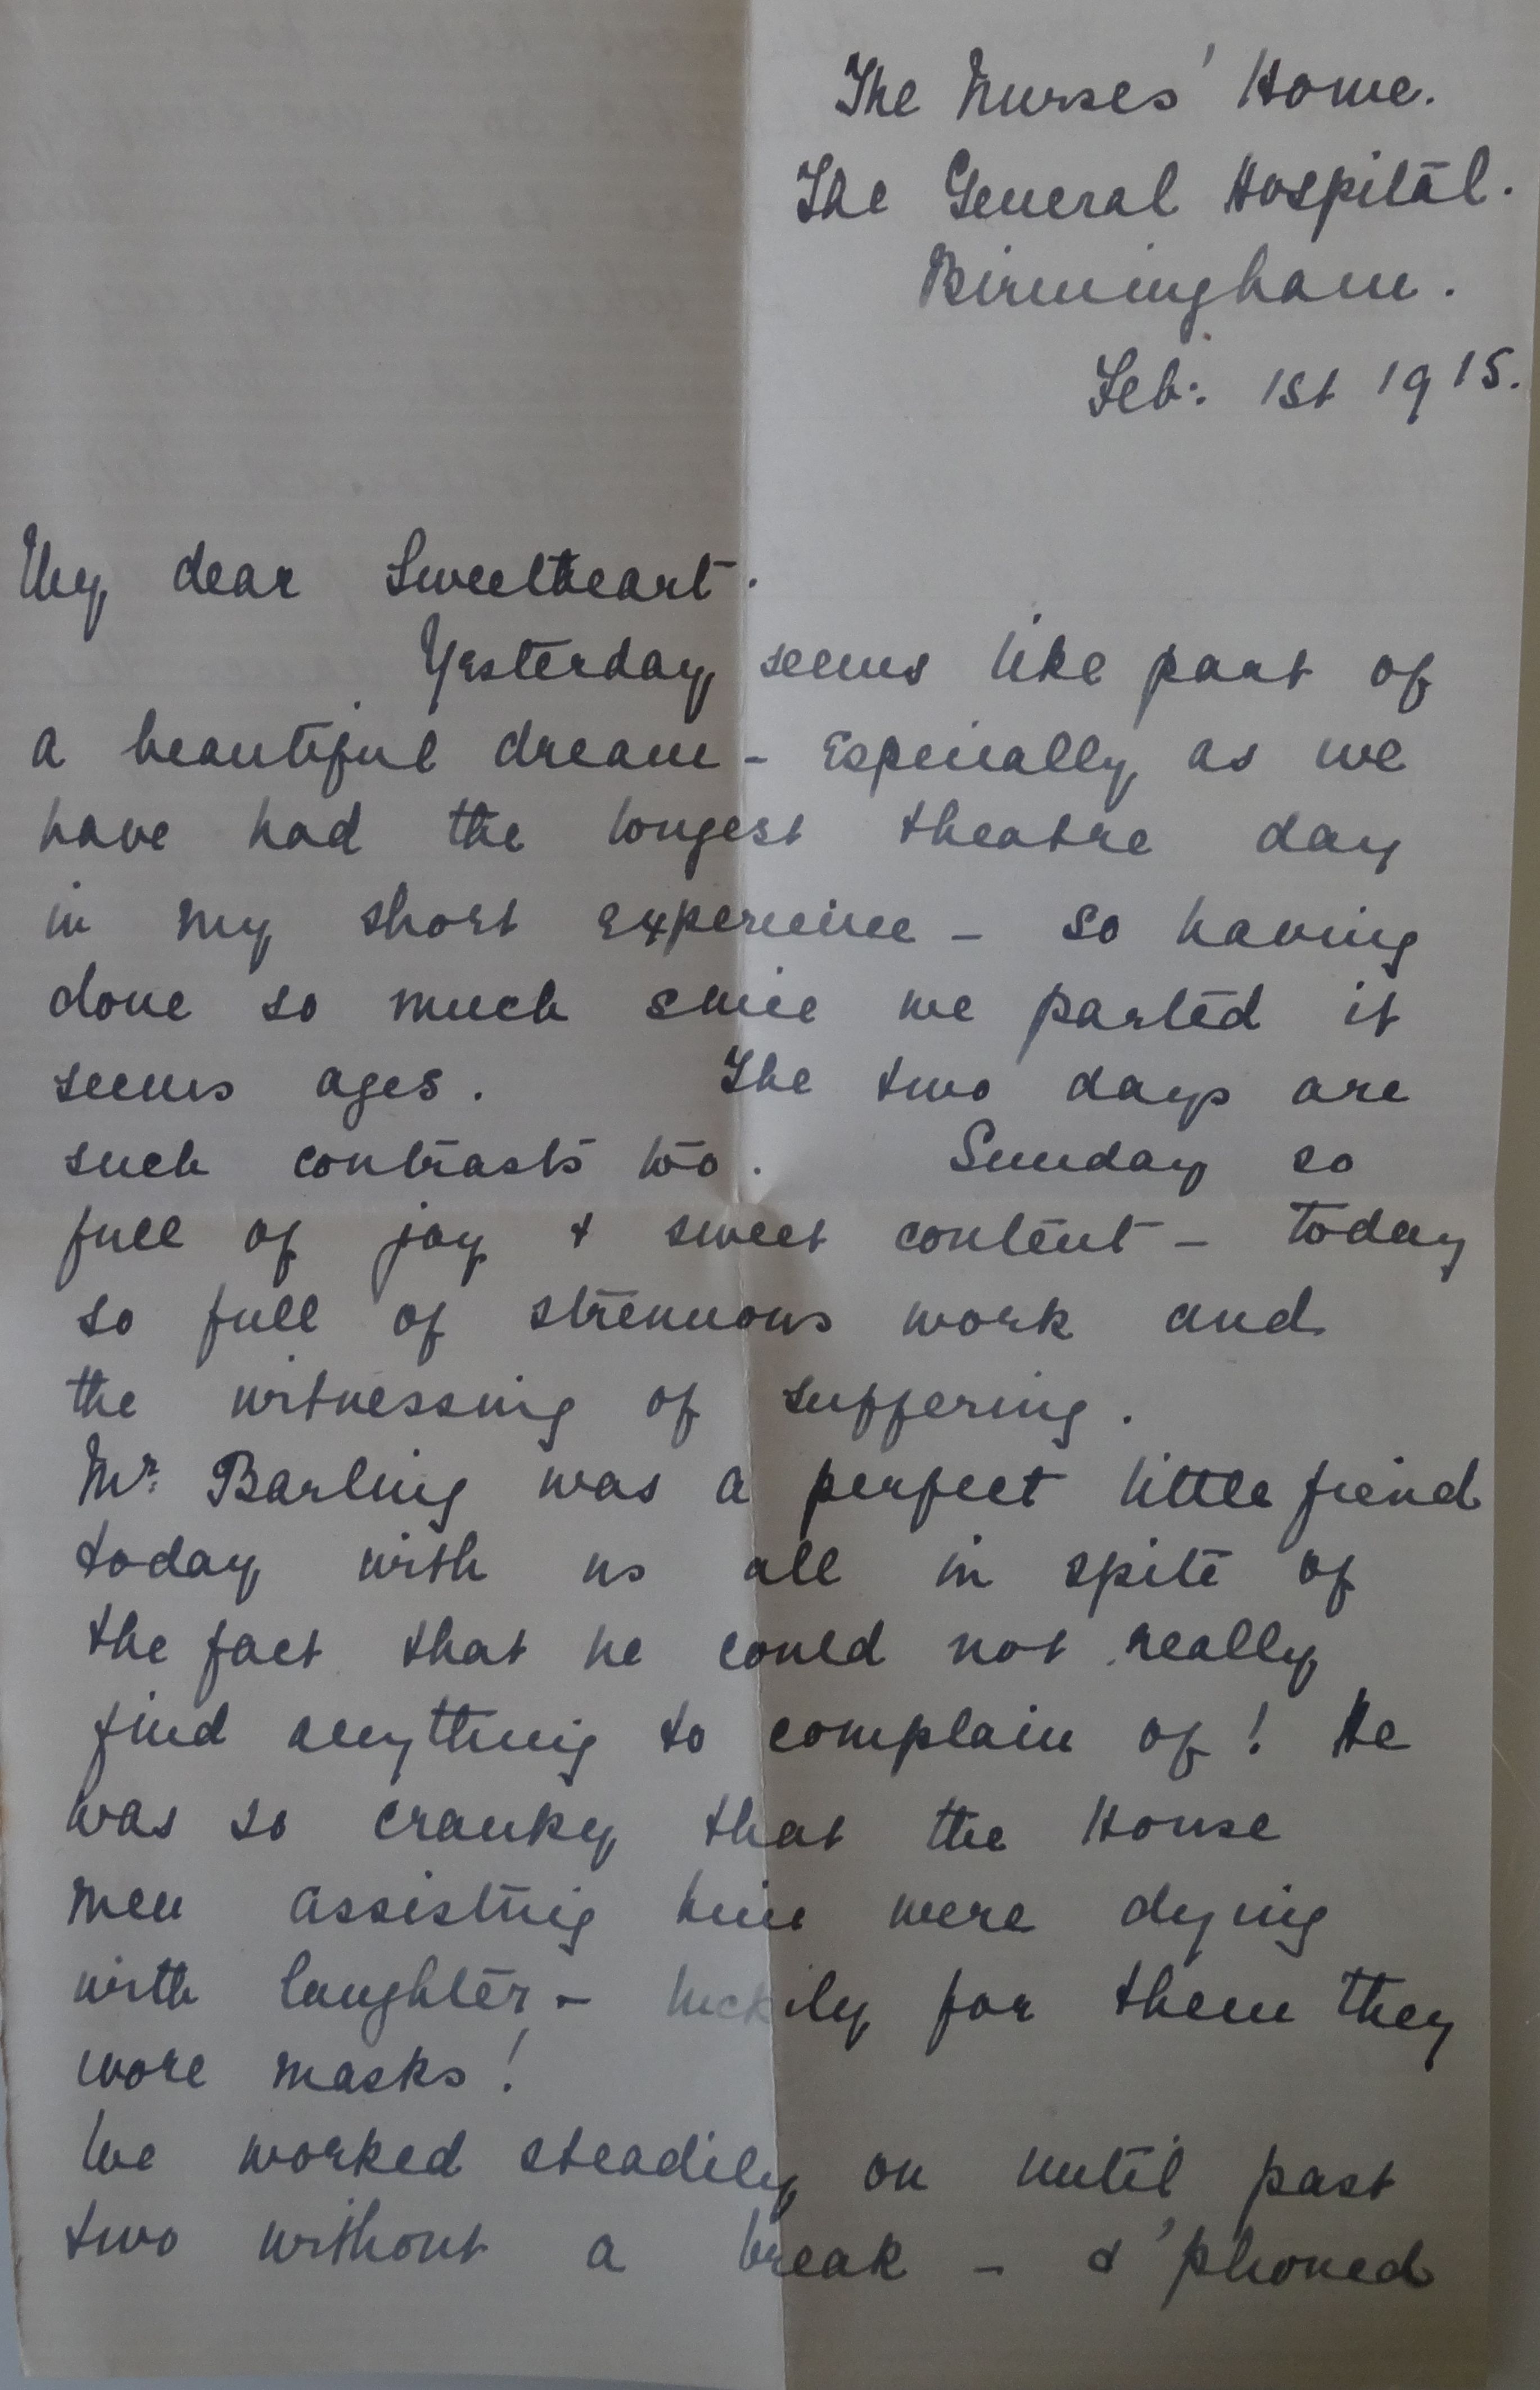 The Nurses' Home.
The General Hospital.
Birmingham.
Feb: 1st 1915.
My dear Sweetheart.
Yesterday seems like part of
a beautiful dream - especially as we
have had the longest theatre day
in my short experience - so having
done so much since we parted it
seems ages. The two days are
such contrasts too. Sunday so
full of joy & sweet content - today
so full of strenuous work and
the witnessing of suffering.
Mr. Barling was a perfect little fiend
today with us all in spite of
the fact that he could not really
find anything to complain of! He
was so cranky that the House
men assisting him were dying
with laughter, - luckily for them they
wore masks!
We worked steadily on until past
two without a break - & 'phoned